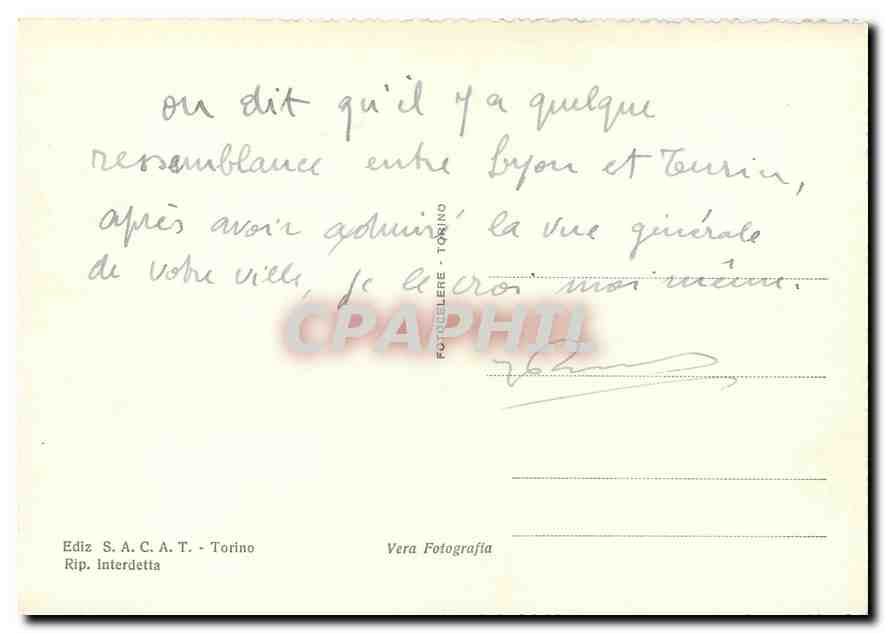 on dit qu'il y a quelque
ressemblance entre Lyon et Turin,
après avoir admiré la vue générale
de votre ville, je le crois moi même.
FOTOCELERE - TORINO
CPAPHIL
Ediz S. A. C. A. T. - Torino
Rip. Interdetta
Vera Fotografia